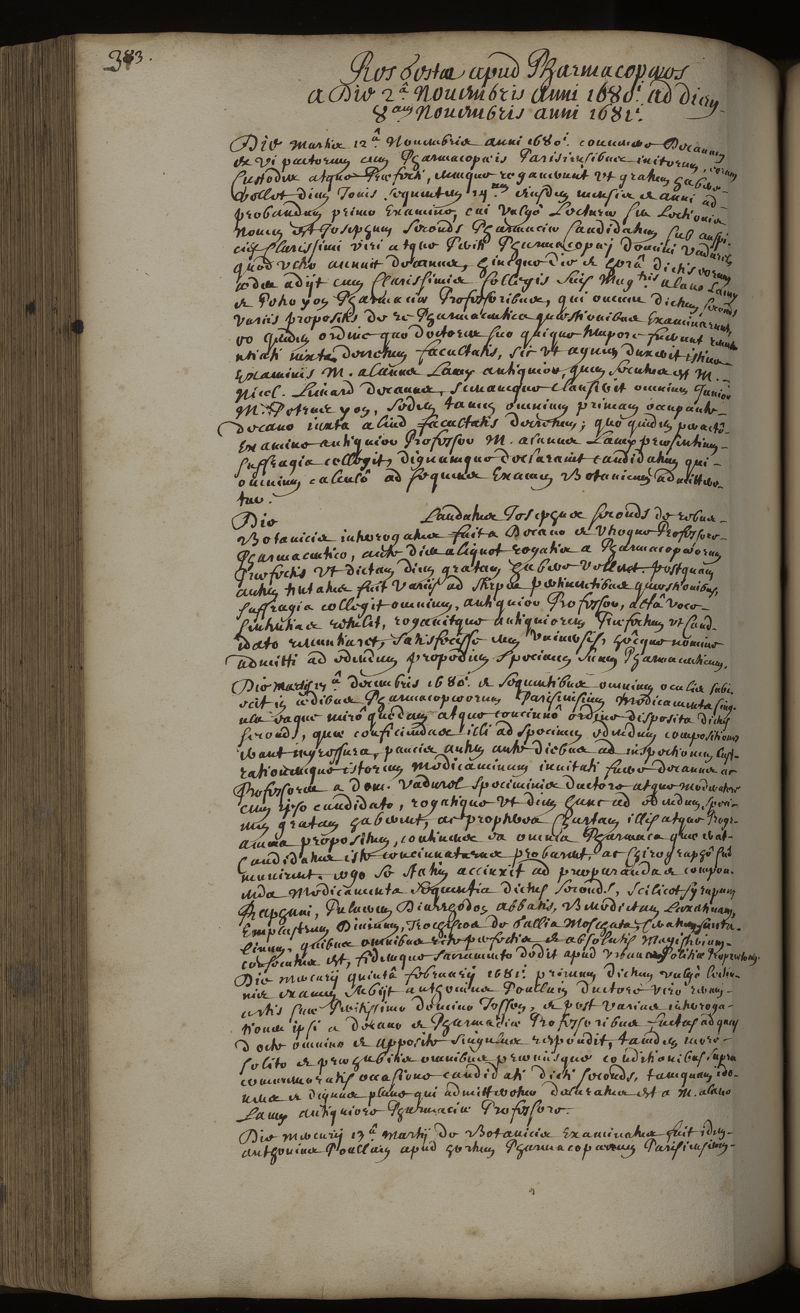 383.
Res Gestae apud Pharmacopaeos
a Die 2ᵃ Novembris anni 1680ⁱ. ad diem
8ᵃᵐ Novembris anni 1681ⁱ.
Die martis 12ᵃ Novembris anni 1680ⁱ. convenere Decanum
ex vi pactorum cum Pharmacopaeis Parisiensibus initorum, eorum
Custodes atque Praefecti, eumque rogaverunt ut gratum habere
vellet diem Jovis sequentem 14ᵘᵐ ejusdem mensis et anni ad
probandum primo Examine, cui vulgò Lecturae seu Lectionis
nomen est Josephum Seconds Pharmaciae Candidatum sub auspi-
ciis Clarissimi viri atque Periti Pharmacopaei Domini Vadurel
quod ultro annuit decanus, hincque die et horâ dictis eorum
aedes adijt cum Clarissimis Collegis suis Magris alano Lamy
et Petro yon Pharmaciae Professoribus, qui omnes dictum Seconds
variis propositis de re Pharmaceutica quaestionibus Examinarunt,
eo quidem ordine quo doctores suo quique tempore fuerunt renun-
tiati iuxta decretum facultatis, sic ut agmen duxerit istius
Examinis M. alanus Lamy antiquior, quem secutus est M.
Nicol. Lienard decanus, Simulque clausit omnium Junior
M. Petrus yon, sedem tamen omnium primam occupante
Decano iuxta aliud facultatis decretum; quo quidem peracto
Examine antiquior Professor M. alanus Lamy praesentium
suffragia collegit, dignumque declaravit candidatum qui
omnium calculo ad sequens Examen Botanicum admittere-
tur.
Die Laudatus Josephus Seconds de rebus
Botanicis interrogatus fuit a Decano et utroque Professore
Pharmaceutico, ante dies aliquot rogatis a Pharmacopaeorum
Praefectis ut dictam diem gratam habere vellent. postquam
autem tentatus fuit variis ad stirpes pertinentibus quaestionibus,
suffragia collegit omnium, antiquior Professor, lectâ vero
sententiâ retulit, rogavitque antiquiorem Praefectum ut Candi-
dato renuntiaret, satisfecisse eum universis, hocque nomine
admitti ad edendum propediem specimen suum Pharmaceuticum.
Die martis 17ᵃ decembris 1680ⁱ. et sequentibus omnium oculis subi-
ecit in aedibus Pharmacopaeorum Parisiensium Medicamenta sing-
ula eaque miro quodam atque concinno ordine disposita dictus
Seconds, quae conficiendae illi ad specimen edendum compositiones
erant ingressura, paucis autem ante diebus ad inspectionem lust-
rationemque istorum Medicaminum invitati fuere decanus ac
Professores a dom. Vadurel speciminis ductore atque moderatore
cum ipso candidato, rogatique ut diem hunc ad edendum speci-
men gratam haberent, ac prophera chartam illis atque Progr-
amma propositum, continens ea omnia Pharmaca quae erat
Candidatus iste concinnaturus probarent, ac chirographo suo
munirent. ergo se statim accinxit ad praeparanda et compon-
enda Medicamenta sequentia dictus Seconds, scilicet syrupum
Raphani, Pulverem Diarrhodon abbatis, Benedictam Laxativam,
Emplastrum Divinum, Trochiscos de Gallia Moschata,
quibus omnibus rite perfectis et absolutis Magisterium
consecutus est, fidemque sacramento dedit apud urbanae Politiae Praefectum.
Die mercurij quintâ februarij 1681ⁱ. primum dictum vulgò lectio-
nis examen subijt anthonius Poullain ductore viro
artis suae Peritissimo domino Josson, et post varias interroga-
tiones ipsi a Decano et Pharmaciae Professoribus factas ad quas
docte omnino et apposite singulas respondit, tandem more
solito et praehabitis omnibus praemissisque conditionibus supra
commemoratis occasione candidati dicti Seconds, tamquam ido-
neus et dignus plane qui admitteretur declaratus est a M. alano
Lamy antiquiore Pharmaciae Professore.
Die mercurij 13ᵃ Martij de Botanicis Examinatus fuit idem
anthonius Poullain apud hortum Pharmacopaeorum Parisiensium